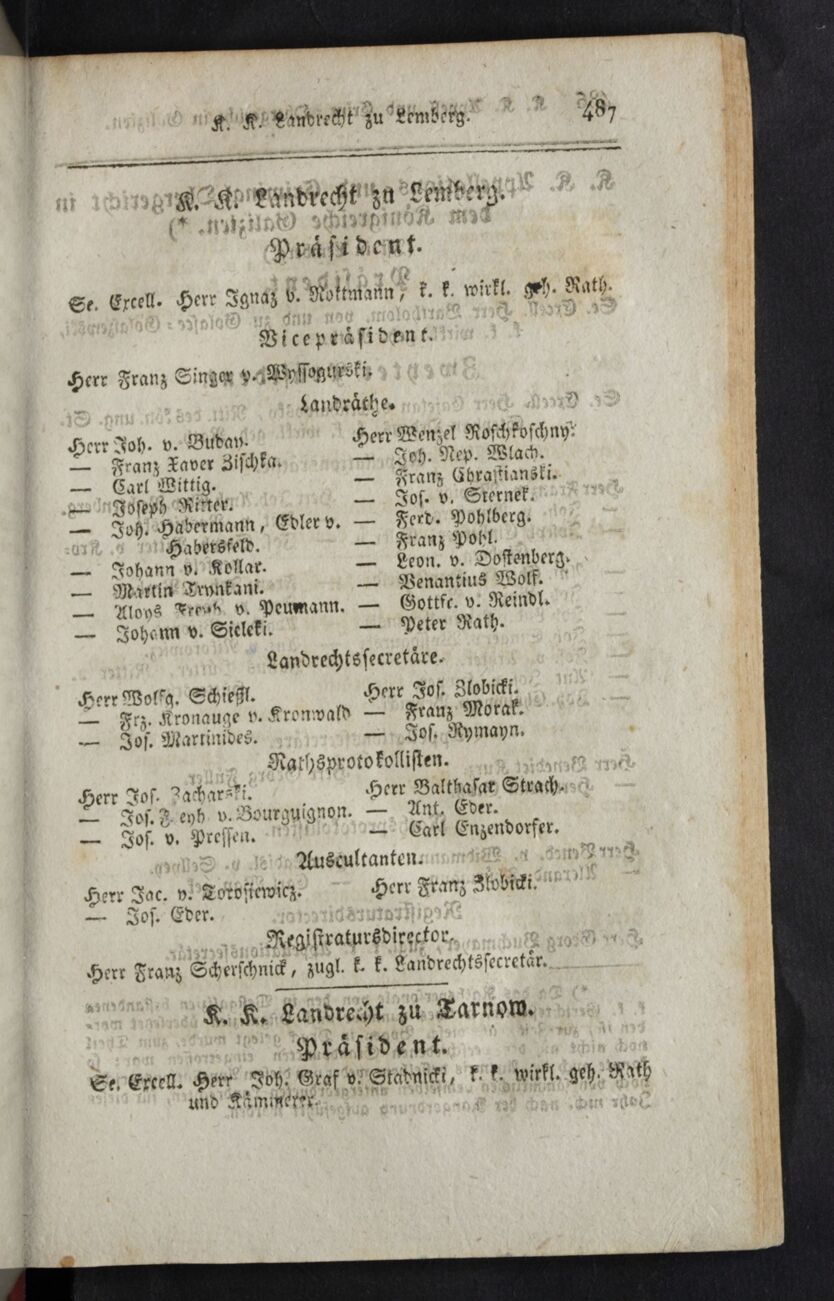 K. K. Landrecht zu Lemberg. 487
K. K. Landrecht zu Lemberg.
Präsident.
Se. Excell. Herr Ignaz v. Rottmann, k. k. wirkl. geh. Rath.
Vicepräsident.
Herr Franz Singer v. Wyssogurski.
Landräthe.
Herr Joh. v. Buday.
— Franz Xaver Zischka.
— Carl Wittig.
— Joseph Ritter.
— Joh. Habermann, Edler v.
Habersfeld.
— Johann v. Kollar.
— Martin Trynkani.
— Aloys Freyh. v. Peumann.
— Johann v. Sieleki.
Herr Wenzel Roschkoschny.
— Joh. Nep. Wlach.
— Franz Chrastianski.
— Jos. v. Sternek.
— Ferd. Pohlberg.
— Franz Pohl.
— Leon. v. Dostenberg.
— Venantius Wolf.
— Gottfr. v. Reindl.
— Peter Rath.
Landrechtssecretäre.
Herr Wolfg. Schiessl.
— Frz. Kronauge v. Kronwald
— Jos. Martinides.
Herr Jos. Zlobicki.
— Franz Morak.
— Jos. Rymayn.
Rathsprotokollisten.
Herr Jos. Zacharski.
— Jos. Freyh v. Bourguignon.
— Jos. v. Pressen.
Herr Balthasar Strach.
— Ant. Eder.
— Carl Enzendorfer.
Auscultanten.
Herr Jac. v. Torosiewicz.
— Jos. Eder.
Herr Franz Zlobicki.
Registratursdirector.
Herr Franz Scherschnick, zugl. k. k. Landrechtssecretär.
K. K. Landrecht zu Tarnow.
Präsident.
Se. Excell. Herr Joh. Graf v. Stadnicki, k. k. wirkl. geh. Rath
und Kämmerer.